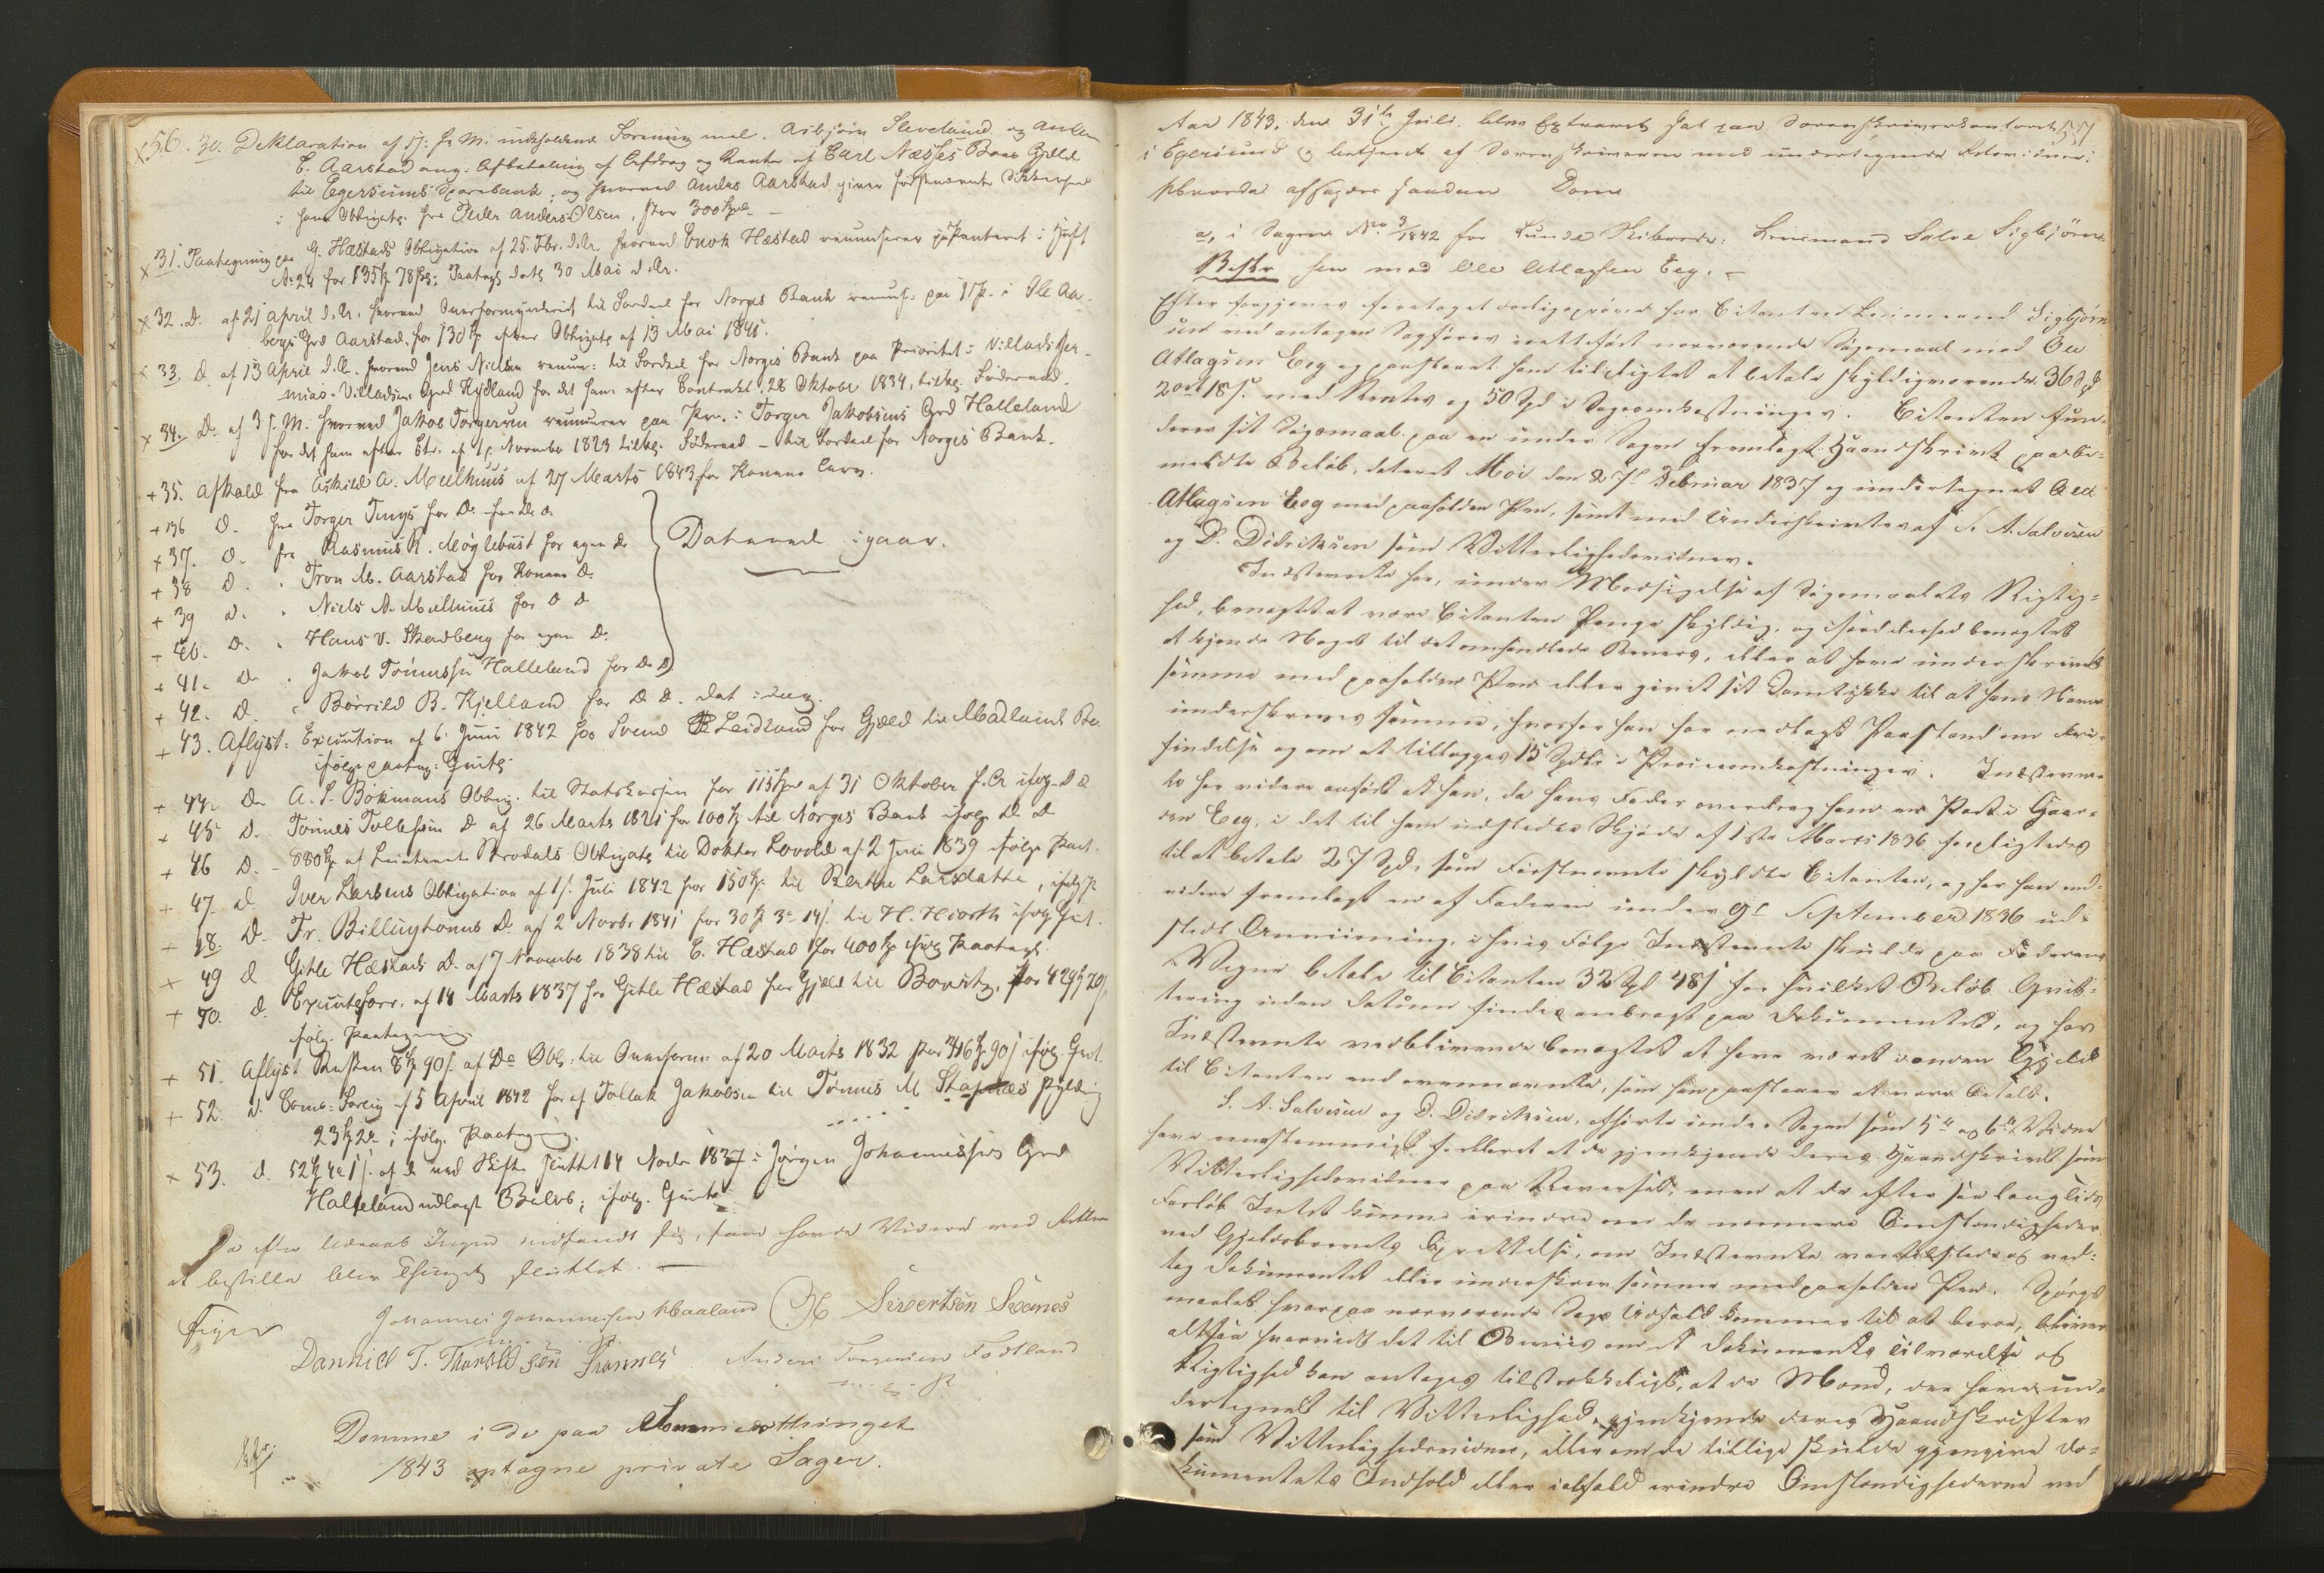 56. 30. Deklaration af 17. f. M. indeholdende Forening mel. Asbjørn Sleveland og Anders
E. Aarstad ang. Afbetaling af Afdrag og Renter af Carl Næsses Boes Gjæld
til Egersunds Sparebank; og hvorved Anders Aarstad giver førstnævnte Sikkerhed
i hans Obligats. fra Peder Anders Olsen, stor 300
31. Paategning paa G. Hæstads Obligation af 25. Fbr. d. Ar. hvorved Enok Hæstad renunserer
No 24 for 135 78; Paategn. dat. 30 Mai d. Ar.
32. D. af 21 April d. A. hvorved Overformynderiet til Fordeel for Norges Bank renuns. paa i Ole Aa-
bergs Grd Aarstad for 130 efter Obligats af 13 Mai 1841.
33. D. af 13 April d. A. hvorved Jens Nielsen renun: til Fordeel for Norges Bank paa Prioritet i Villads Jer-
mias. Villadsens Grd Hydland for det ham efter Contrakt 28 Oktober 1834, tilkg. Føderaad.
34. D. af 3 f. M. hvorved Jakob Torgersen renunserer paa Prior. i Torger Jakobsens Grd Halleland
for det ham efter Ctr. af 1 November 1823 tilkg. Føderaad - til Fordeel for Norges Bank.
35. Afkald fra Eskild A. Meelhuus af 27 Marts 1843 for Konens Arv.
36 D. fra Torger Tengs for D. fader
37. D. fra Rasmus R. Møglebust for egen D.
Dateret igaar.
38 D. " Tron M. Aarstad for Konens D.
39 D. " Niels A. Mælhuus for D D
40. D. " Hans V. Skadberg for egen D.
41. D. " Jakob Tønnessen Halleland for D. D
42. D. " Børrild B. Kjelland for D. D. dat idag.
43. Aflyst: Execution af 6. Juni 1842 hos Svend Leidland for Gjæld til Madlands Bo.
ifølge paateg: Qvitg.
44. D. A. S. Bøkmans Oblig. til Statskassen for 115 af 31 Oktober f. A ifølg. D D
45 D. Tønnes Tollefsens D af 26 Marts 1821 for 100 til Norges Bank ifølg. D. D
46 D. - 880 af Lieutenant Skrodals Obligats til Dokter Lovold af 2 Juni 1839 ifølge Paat.
47. D. Iver Larsens Obligation af 1. Juli 1842 for 150 til Berthe Larsdatter, ifølg
48. D. Fr. Billingtonus D. af 2 Novbr 1841 for 30 3 14 til H. Hiorth ifølg Qvit.
49 D Gitle Hæstads D. af 7 November 1838 til E. Hæstad for 400 ifølg Paategn.
50. D. Executsforr. af 14 Marts 1837 hos Gitle Hæstad for Gjæld til Bowitz, for 42 20
ifølg. Paategning
51. Aflyst Resten 8 90 af D. Obl: til Overform: af 20 Marts 1832 stor 346 90 ifølg. Qvit.
52. D. Comis: Forlig af 5 April 1842 for af Tollak Jakobsen til Tønnes M. Stapnæs skyldig
23 2; ifølg. Paategning.
53. D. 52 4 1 af D ved Skifte sluttet 14 Novbr 1837 i Jørgen Johannessens Grd
Halleland udlagt Beløb; ifølg. Qvit.
Da efter Udraab Ingen indfandt sig, som havde Videre ved Retten
at bestille blev Thinget sluttet. -
Feyer Johannes Johannessen Maaland O. H. Sivertsen Svanes
Danniel T. Tharaldsøn Svannes Anders Torgersen Fotland
Domme i de paa Sommerthinget
1843 optagne private Sager.
57
Aar 1843. den 31te Juli. blev Extraret sat paa Sorenskriverkontoret
i Egersund og betjent af Sorenskriveren med undertegnede Retsvidner:
hvorda afsagdes saadan Dom
a, i Sagen No 3/1842 for Lunde Skibrede: Lensmand Salve Sigbjørn-
sen mod Ole Atlagsen Eeg. -
Efter forgjæves foretaget Forligsprøve har Citanten Lensmand Sigbjørn-
sen ved antagen Sagfører indstevnt nærværende Søgsmaal mod Ole
Atlagsen Eeg og paastaaet ham tilpligtet at betale skyldigværende 36 Spd
2 ort 18 s. med Renter og 50 Spd i Sagsomkostninger. Citanten fun-
derer sit Søgsmaal paa en under Sagen fremlagt Haandskrivt paabe-
meldte Beløb, dateret Moi den 27de Februar 1837 og undertegnet Ole
Atlagsen Eeg med paaholden Pen, samt med Underskrivter af S. A. Salvesen
og D. Didriksen som Vitterlighedsvidner.
Indstevnte har, under Modsigelse af Søgsmaalets Rigtig-
hed, benægtet at være Citanten Penge skyldig, og isærdeleshed benægtet
at kjende Noget til det omhandlede Bevis, eller at have underskrevet
samme med paaholden Pen eller givet sit Samtykke til at hans Navn
underskreves samme, hvorfor han har nedlagt Paastand om Fri-
findelse og om at tillægges 15 Spdlr i Procesomkostninger. Indstevn-
te har videre anført at han, da hans Fader overdrog ham en Part i Gaar-
den Eeg, i det til ham udstedte Skjøde af 1ste Marts 1836 forpligtedes
til at betale 27 Spd, som Førstnævnte skyldte Citanten, og har han end-
videre fremlagt en af Faderen under 9de September 1836 ud-
stedt Anviisning, i hvis Følge Indstevnte skulde paa Faderens
Vegne betale til Citanten 32 Spd 48 s for hvilket Beløb Qvit-
tering uden Datum findes anbragt paa Dokumentet, og har
Indstevnte vedblivende benægtet at have været i anden Gjæld
til Citanten end ovennævnte, som han paastaaer at være betalt.
S. A. Salvesen og D. Didriksen, afhørte under Sagen som 5te og 6te Vidne
have eenstemmigt forklaret at de gjenkjende deres Haandskrivt som
Vitterlighedsvidner paa Reverset, men at de efter saa lang Tids
Forløb Intet kunne erindre om de nærmere Omstændigheder
ved Gjeldsbrevets Oprettelse, om Indstevnte var tilstede og ved-
tog Dokumentet eller underskrev samme med paaholden Pen. Spørgs-
maalet hvorpaa nærværende Sags Udfald kommer til at beroe, bliver
altsaa hvorvidt det til Beviis om et Dokuments Tilværelse og
Rigtighed kan antages tilstrækkeligt, at de Mænd, der have un-
dertegnet til Vitterlighed, gjenkjende deres Haandskrifter
som Vitterlighedsvidner, eller om de tillige skulde gjengive Do-
kumentets Indhold eller ialfald erindre Omstændighederne ved